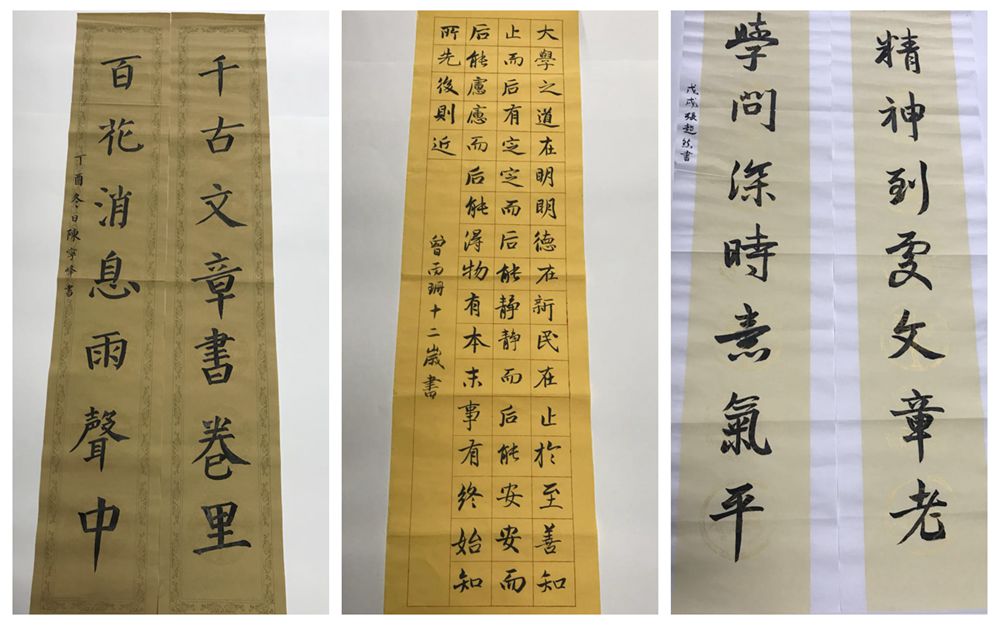 千古文章書卷里
百花消息雨聲中
丁酉冬日陳寧峰書
大學之道在明明德在新民在止於至善知
止而后有定定而后能静静而后能安安而
后能慮慮而后能得物有本末事有終始知
所先後則近
曾雨珊十二歲書
精神到處文章老
學問深時意氣平
戊戌張超然書